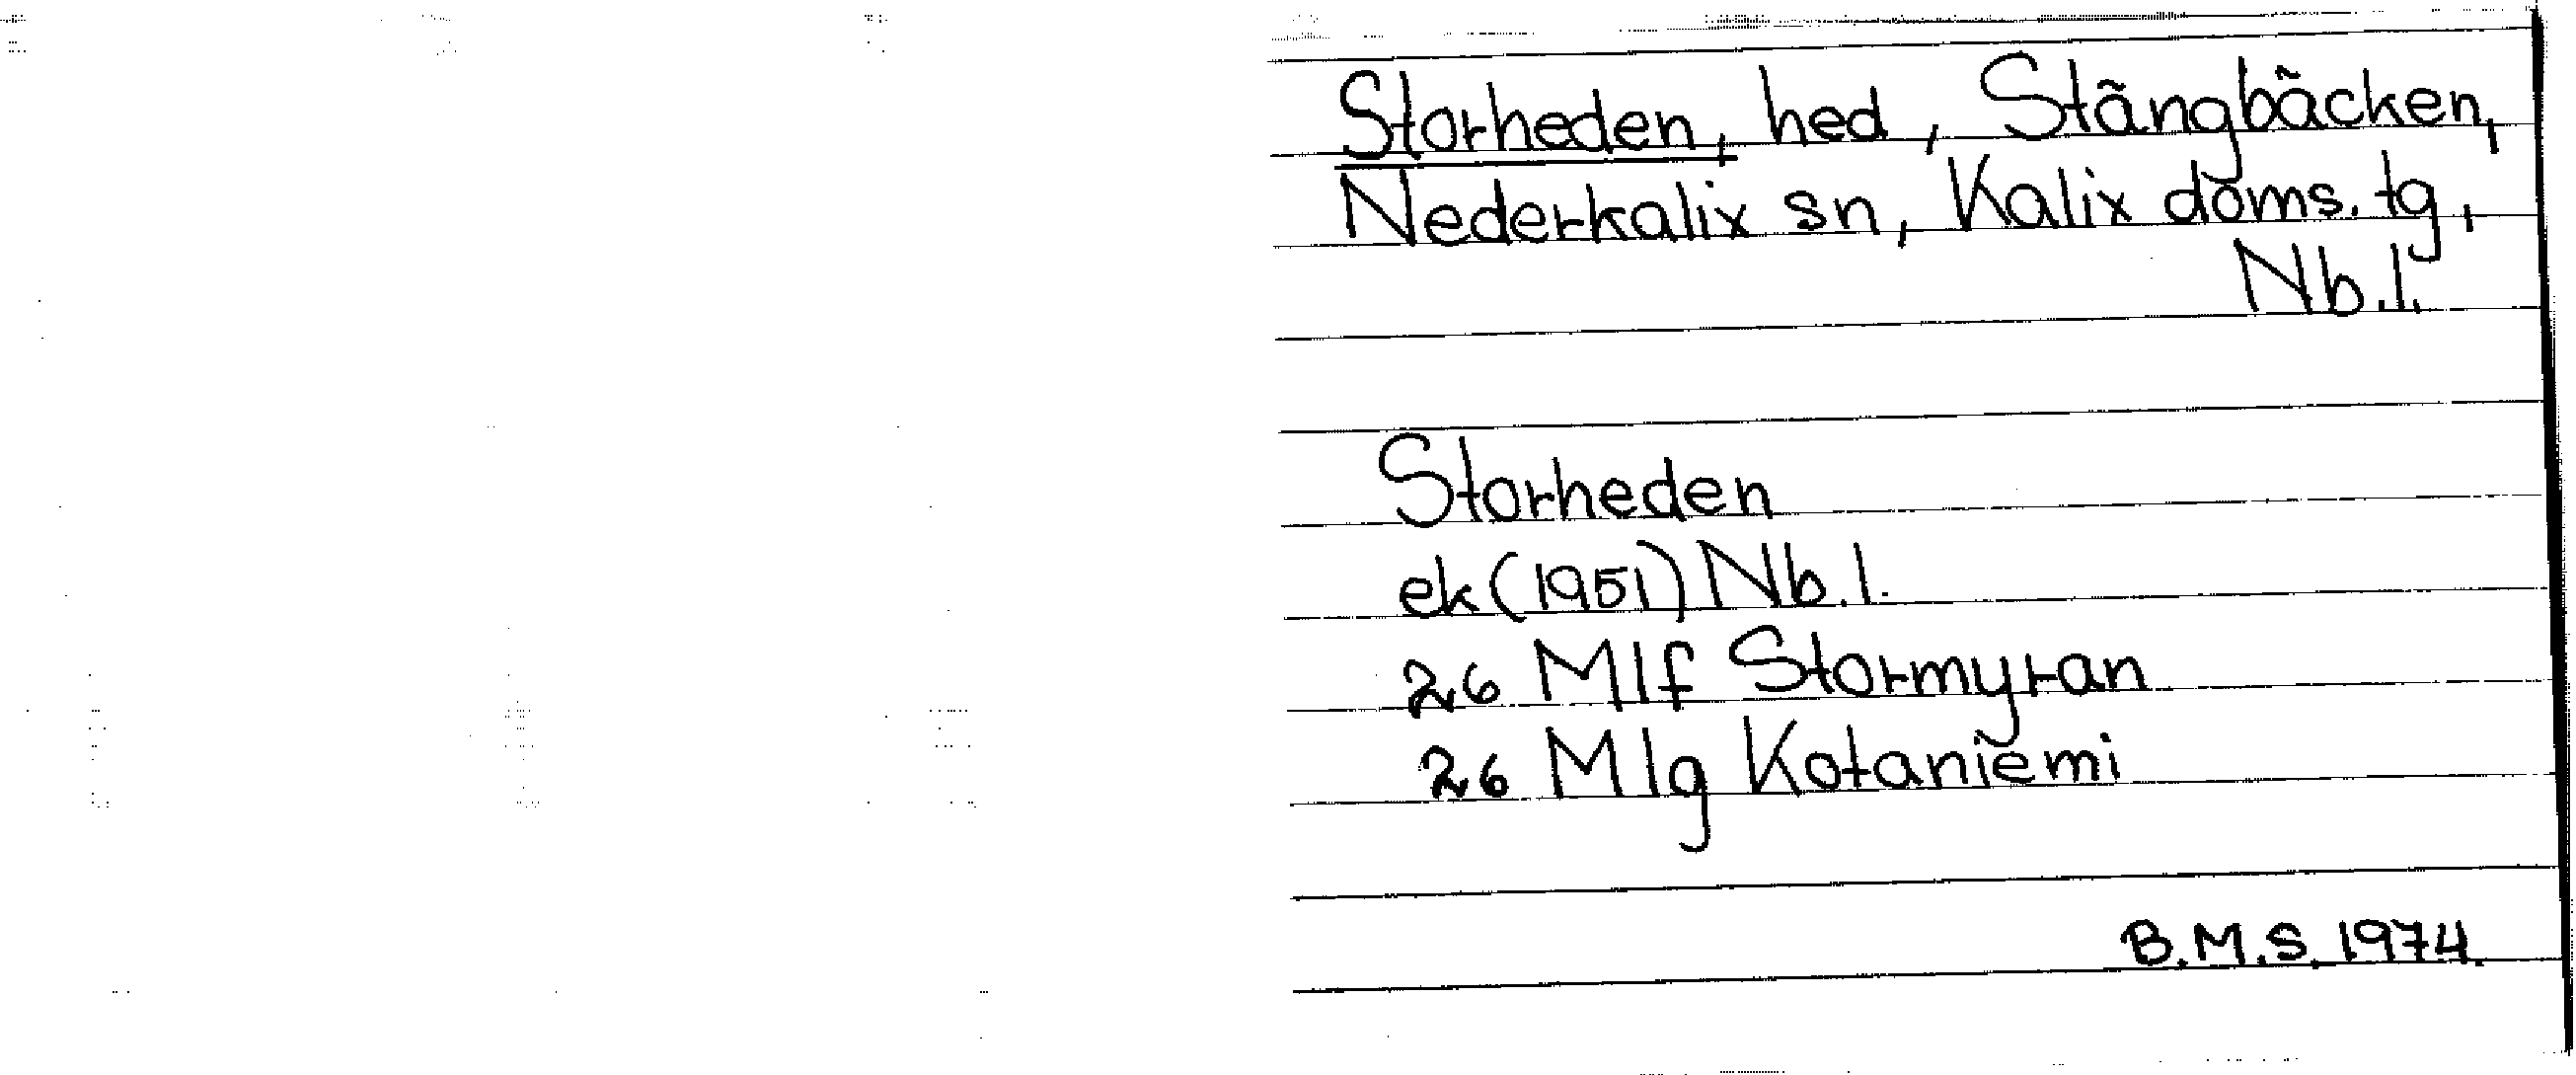 Storheden, hed, Stångbäcken,
Nederkalix sn, Kalix doms. tg,
Nb.l.
Storheden
ek (1951) Nb.l.
26 Mlf Stormyran
26 Mlg Kotaniemi
B.M.S. 1974.